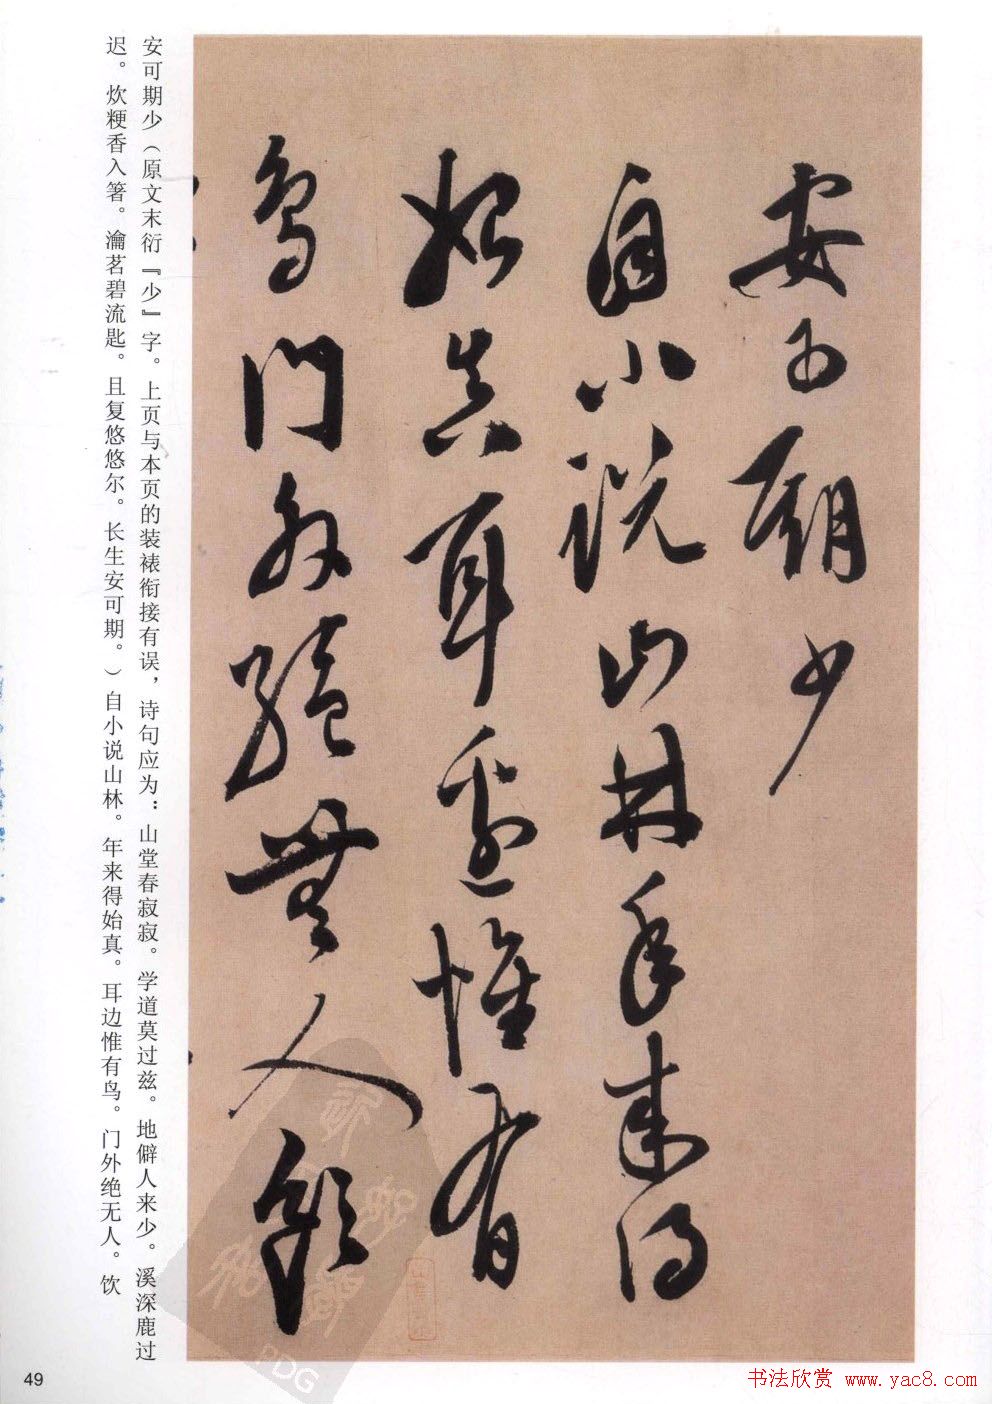 安可期少
自小说山林年来得
始真耳边惟有
鸟门外绝无人饮
安可期少（原文末衍『少』字。上页与本页的装裱衔接有误，诗句应为：山堂春寂寂。学道莫过兹。地僻人来少。溪深鹿过
迟。炊粳香入箸。瀹茗碧流匙。且复悠悠尔。长生安可期。）自小说山林。年来得始真。耳边惟有鸟。门外绝无人。饮
49
PDG
书法欣赏 www.yac8.com